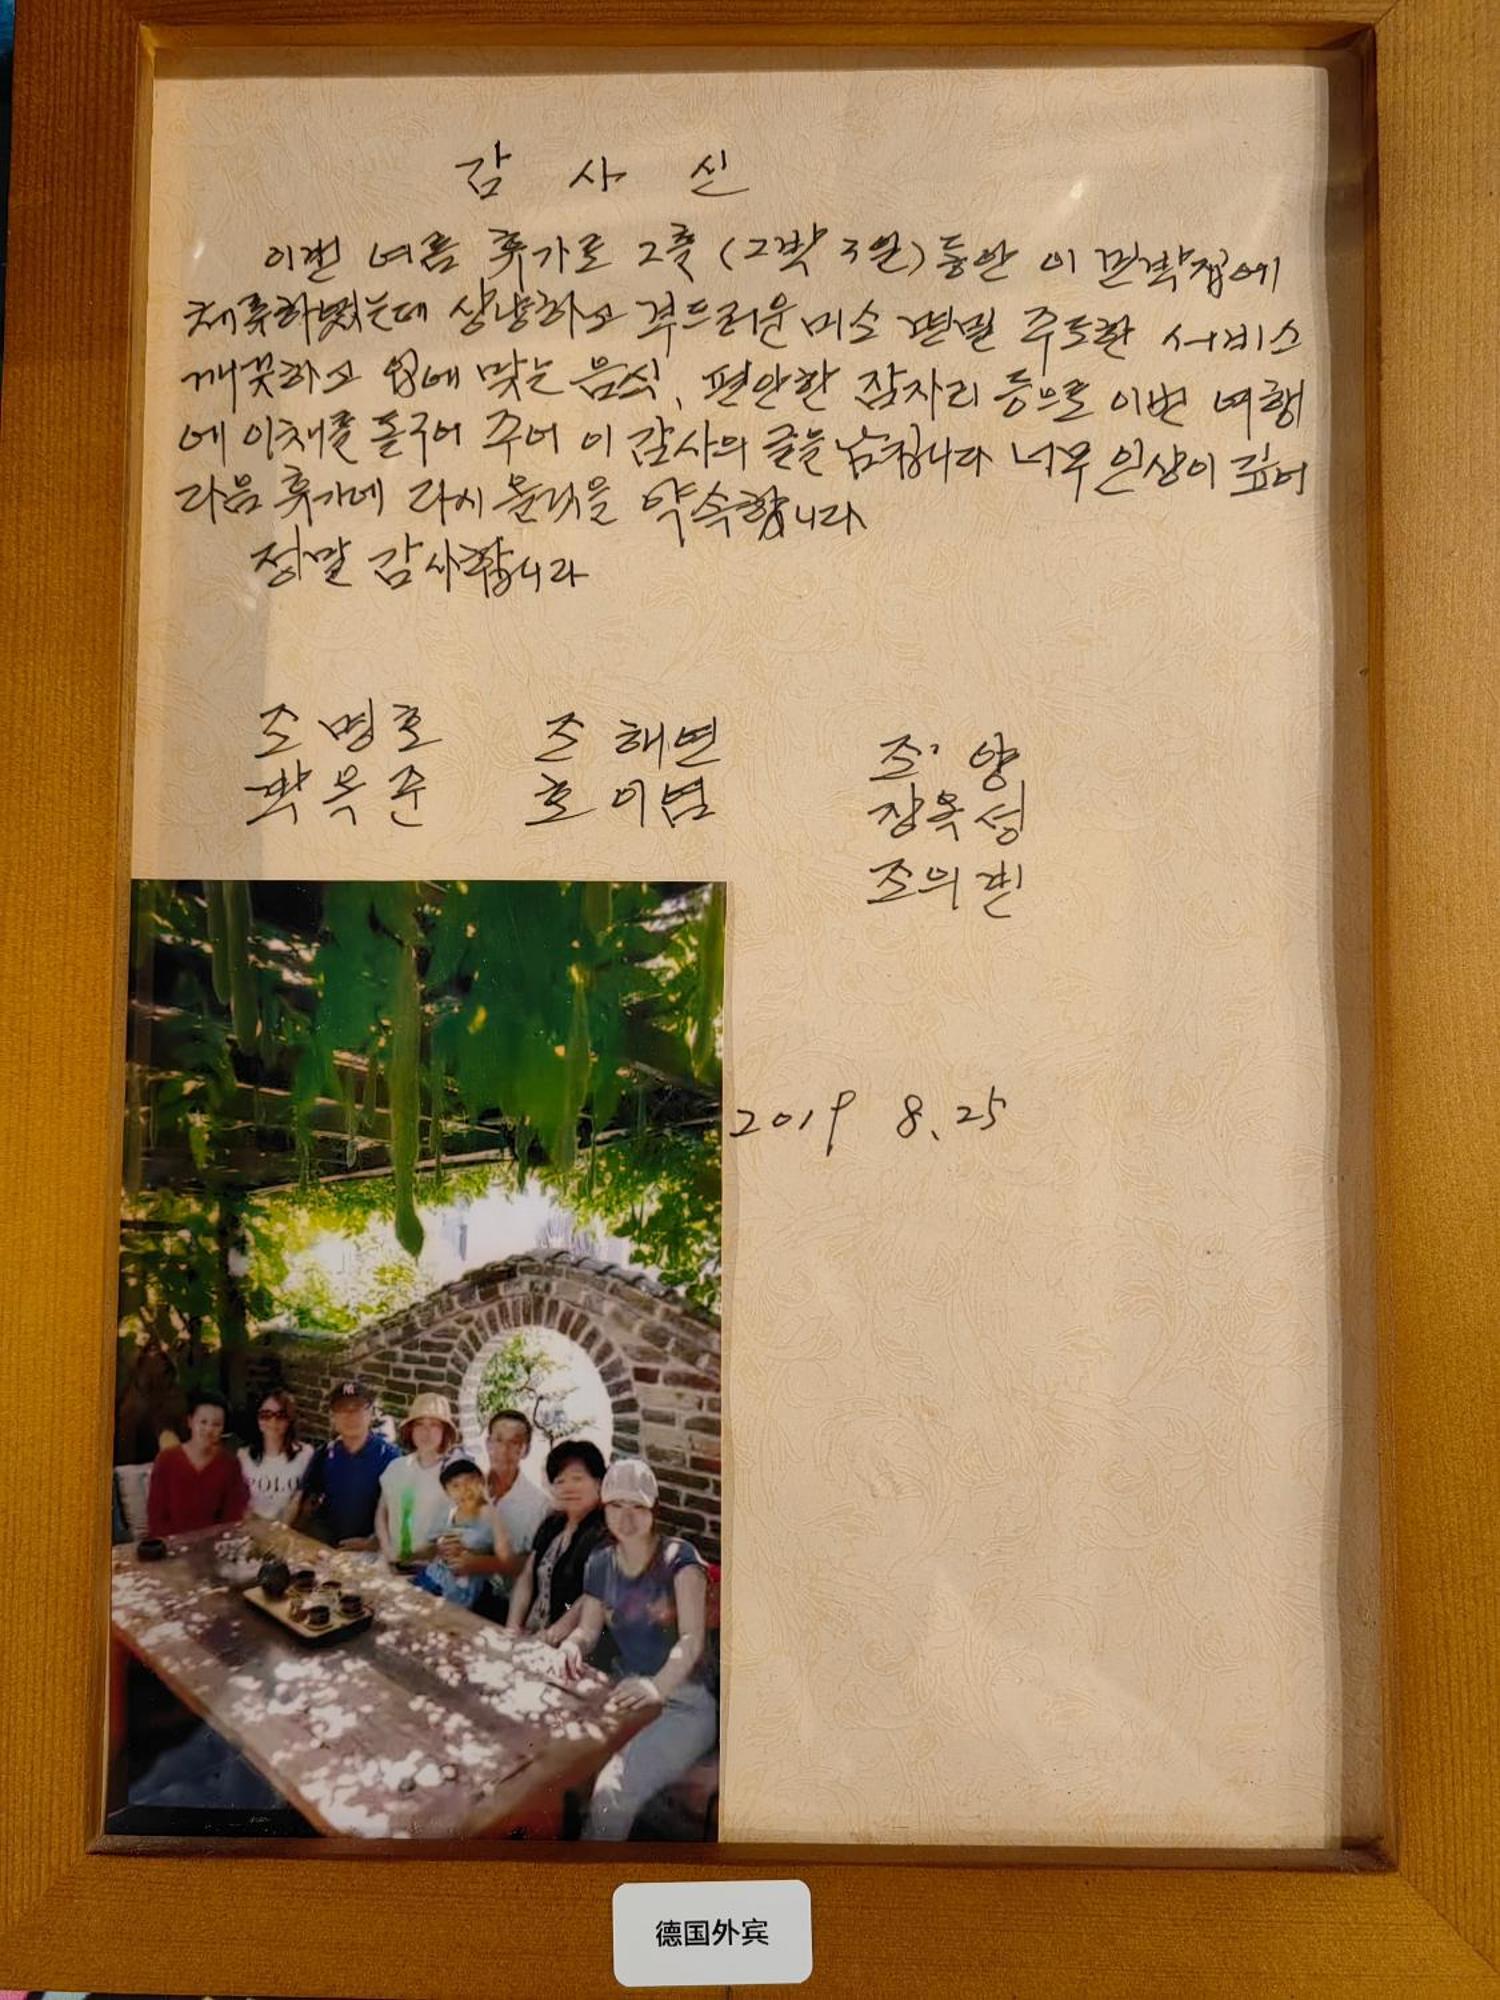 감 사 신
이번 여름 휴가로 2축 (2박 3일) 동안 이 민박집에
체류하였는데 상냥하고 부드러운 미소 면밀 주도한 서비스
깨끗하고 입에 맞는 음식, 편안한 잠자리 등으로 이번 여행
에 이채를 돋구어 주어 이 감사의 글을 남깁니다 너무 인상이 깊어
다음 휴가에 다시 올것을 약속합니다
정말 감사합니다
조 명호 조 해연 조 양
박옥준 호이범 장옥성
조의빈
2019 8.25
NY
POLO
德国外宾